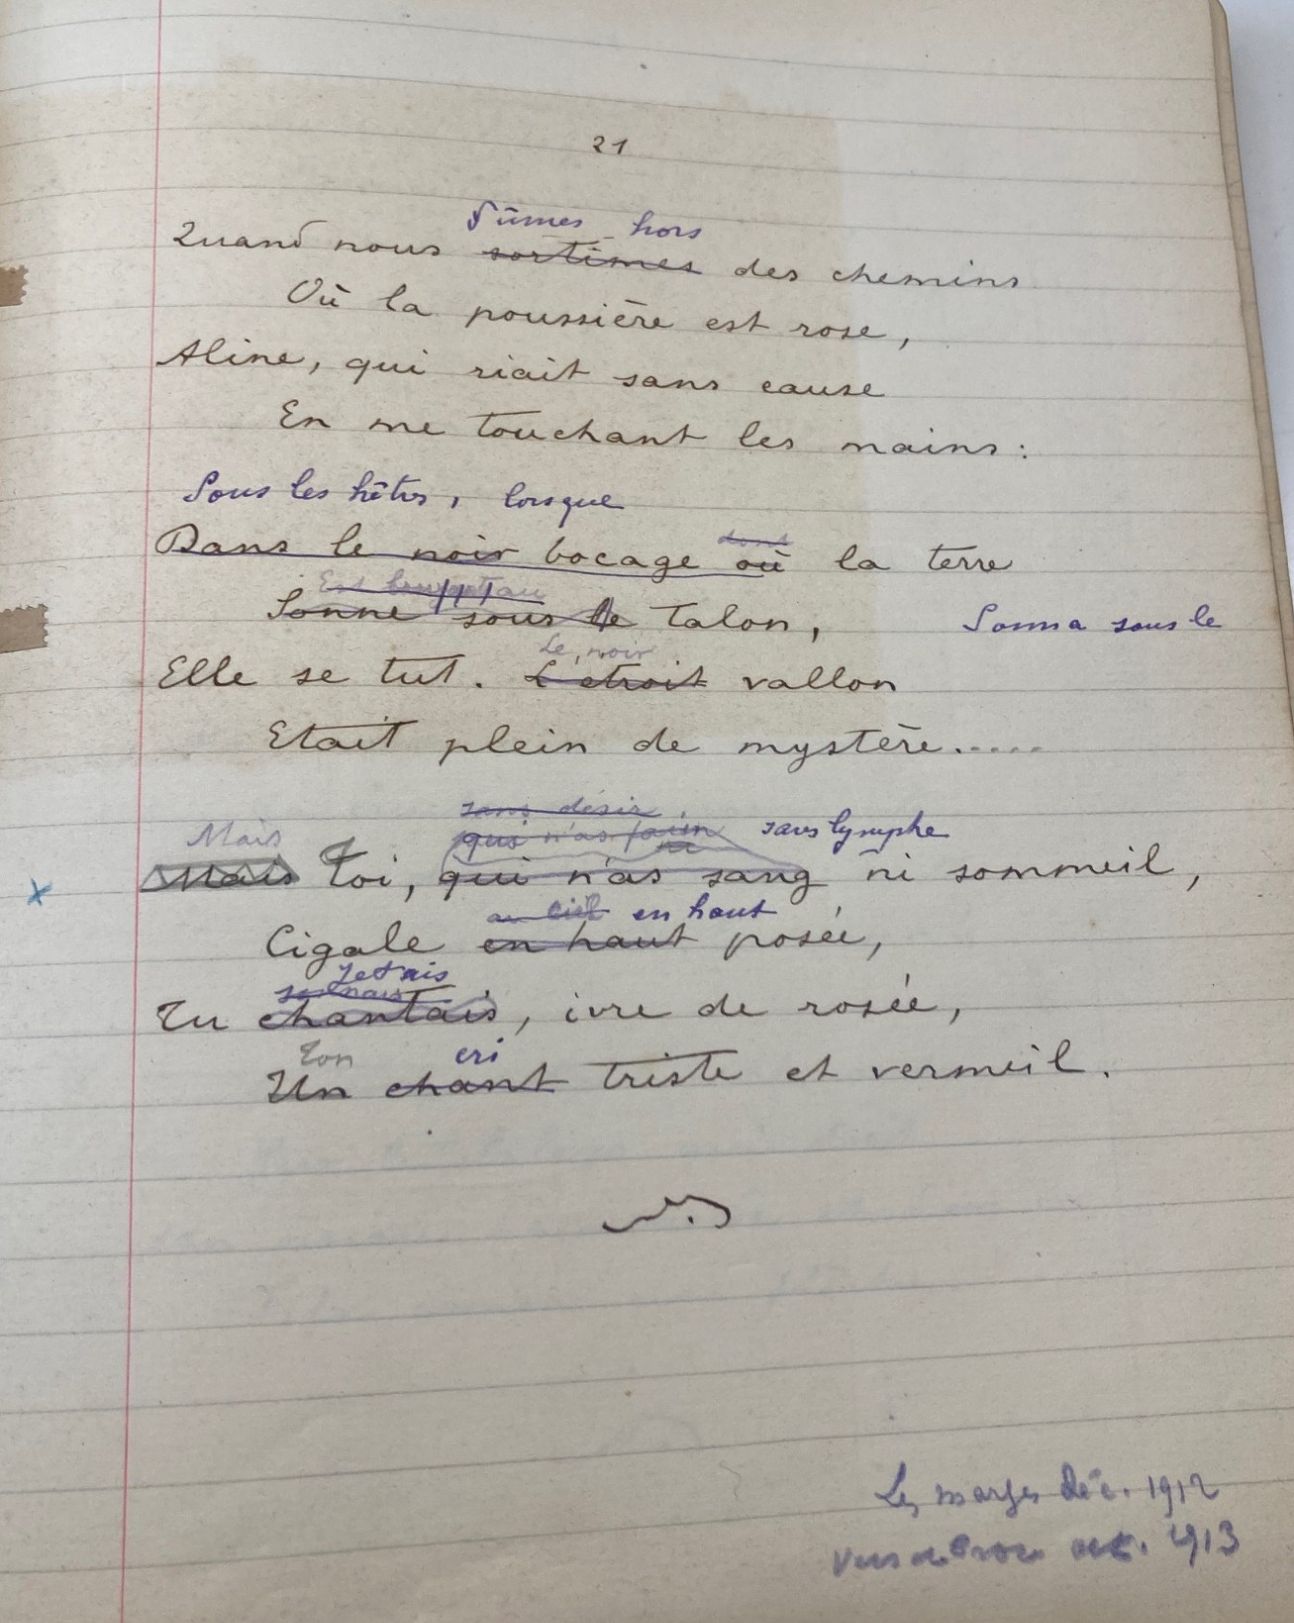 21
fûmes hors
Quand nous sortîmes des chemins
Où la poussière est rose,
Aline, qui riait sans cause
En me touchant les mains :
Sous les hêtres, lorsque
dont
Dans le noir bocage où la terre
Est
Sonne sous le talon, Sonna sous le
Le noir
Elle se tut. L'étroit vallon
Etait plein de mystère.....
sans désir
Mais qui n'as faim sans lymphe
Mais toi, qui n'as sang ni sommeil,
au ciel en haut
Cigale en haut posée,
Jetais
Tu chantais, ivre de rosée,
Ton cri
Un chant triste et vermeil.
Les marges Déc. 1912
Vers et Prose oct. 1913